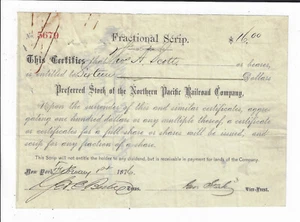 Fractional Scrip.
No. 5679 $16.00
This Certifies that Jno. H. Scott or bearer,
is entitled to Sixteen Dollars
Preferred Stock of the Northern Pacific Railroad Company.
Upon the surrender of this and similar certificates, aggre-
gating one hundred dollars or any multiple thereof a certificate
or certificates for a full share or shares will be issued, and
scrip for any fraction of a share.
This Scrip will not entitle the holder to any dividend, but is receivable in payment for lands of the Company.
New York, February 1st 1876.
Vice-Prest.